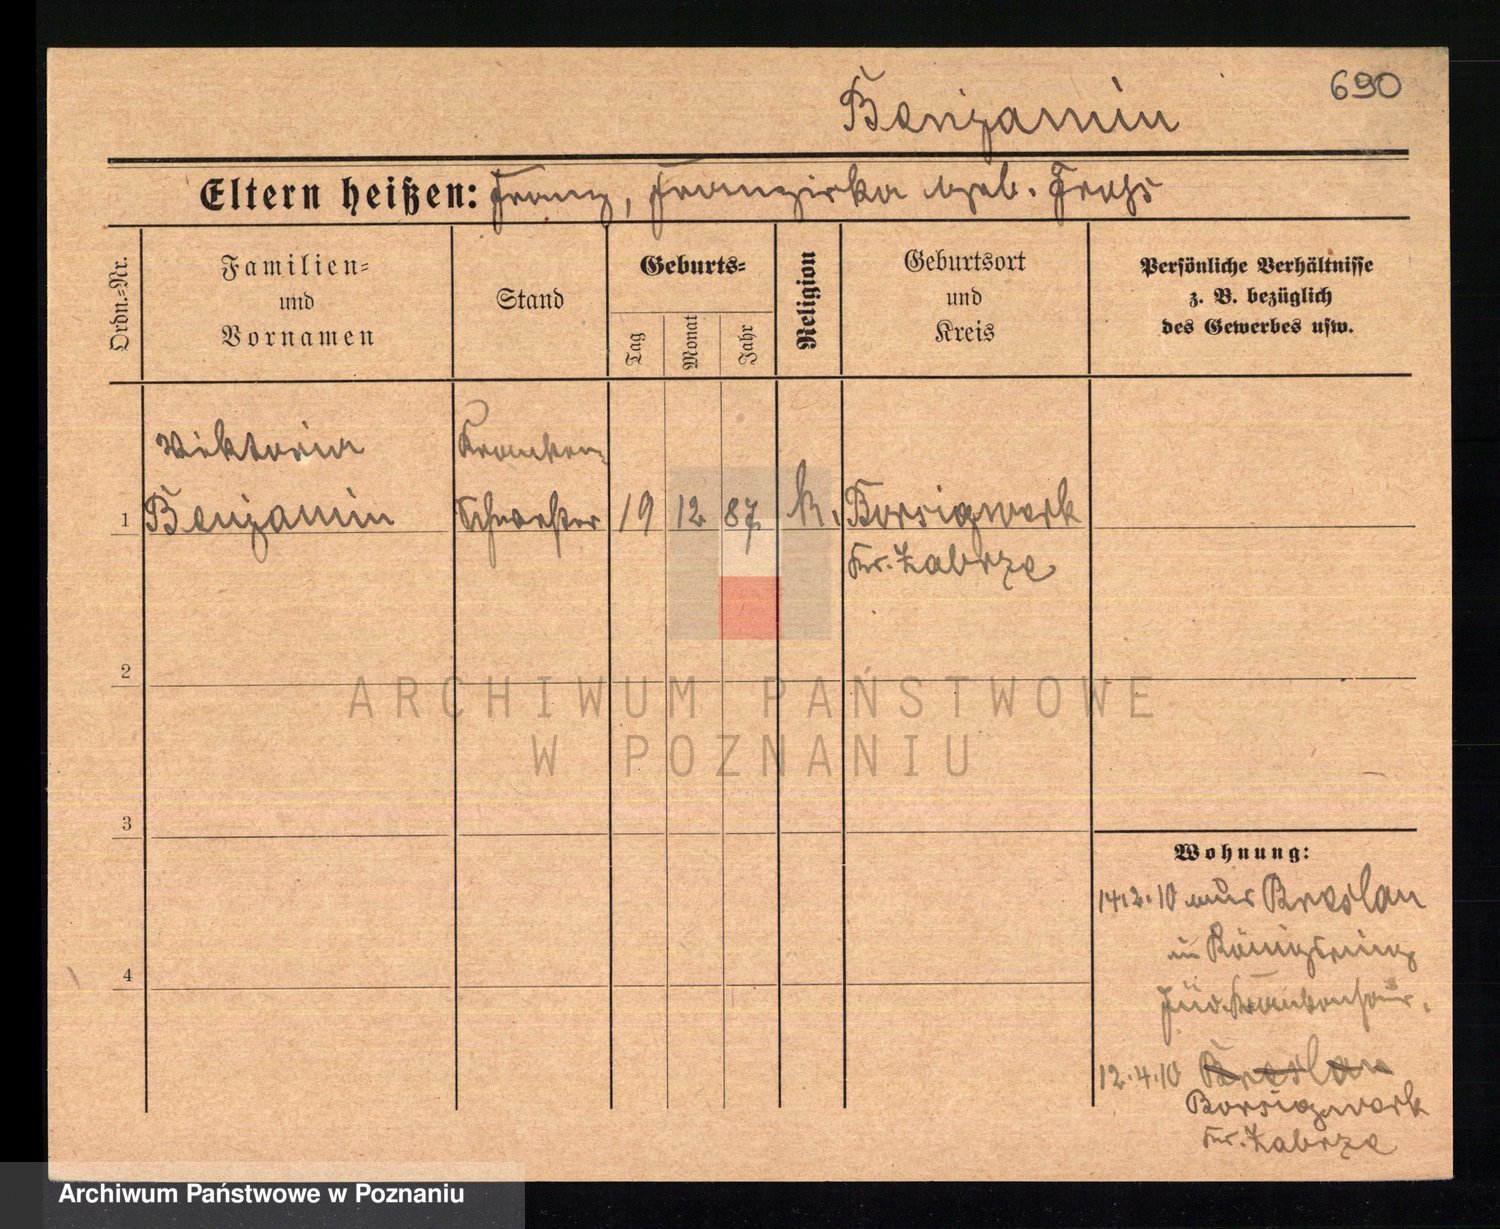 690
Benjamin
Eltern heißen: Franz, Franziska geb.
Ordn.-Nr.
Familien-
und
Vornamen
Stand
Geburts-
Tag
Monat
Jahr
Religion
Geburtsort
und
Kreis
Persönliche Verhältnisse
z. B. bezüglich
des Gewerbes usw.
Viktoria
Kranken-
1 Benjamin Schwester 19 12 87 k. Borsigwerk
Kr. Zabrze
2
ARCHIWUM PAŃSTWOWE
W POZNANIU
3
Wohnung:
14.2.10 aus Breslau
in Königsring
Jüd. Krankenhaus.
4
12.4.10 Breslau
Borsigwerk
Kr. Zabrze
Archiwum Państwowe w Poznaniu